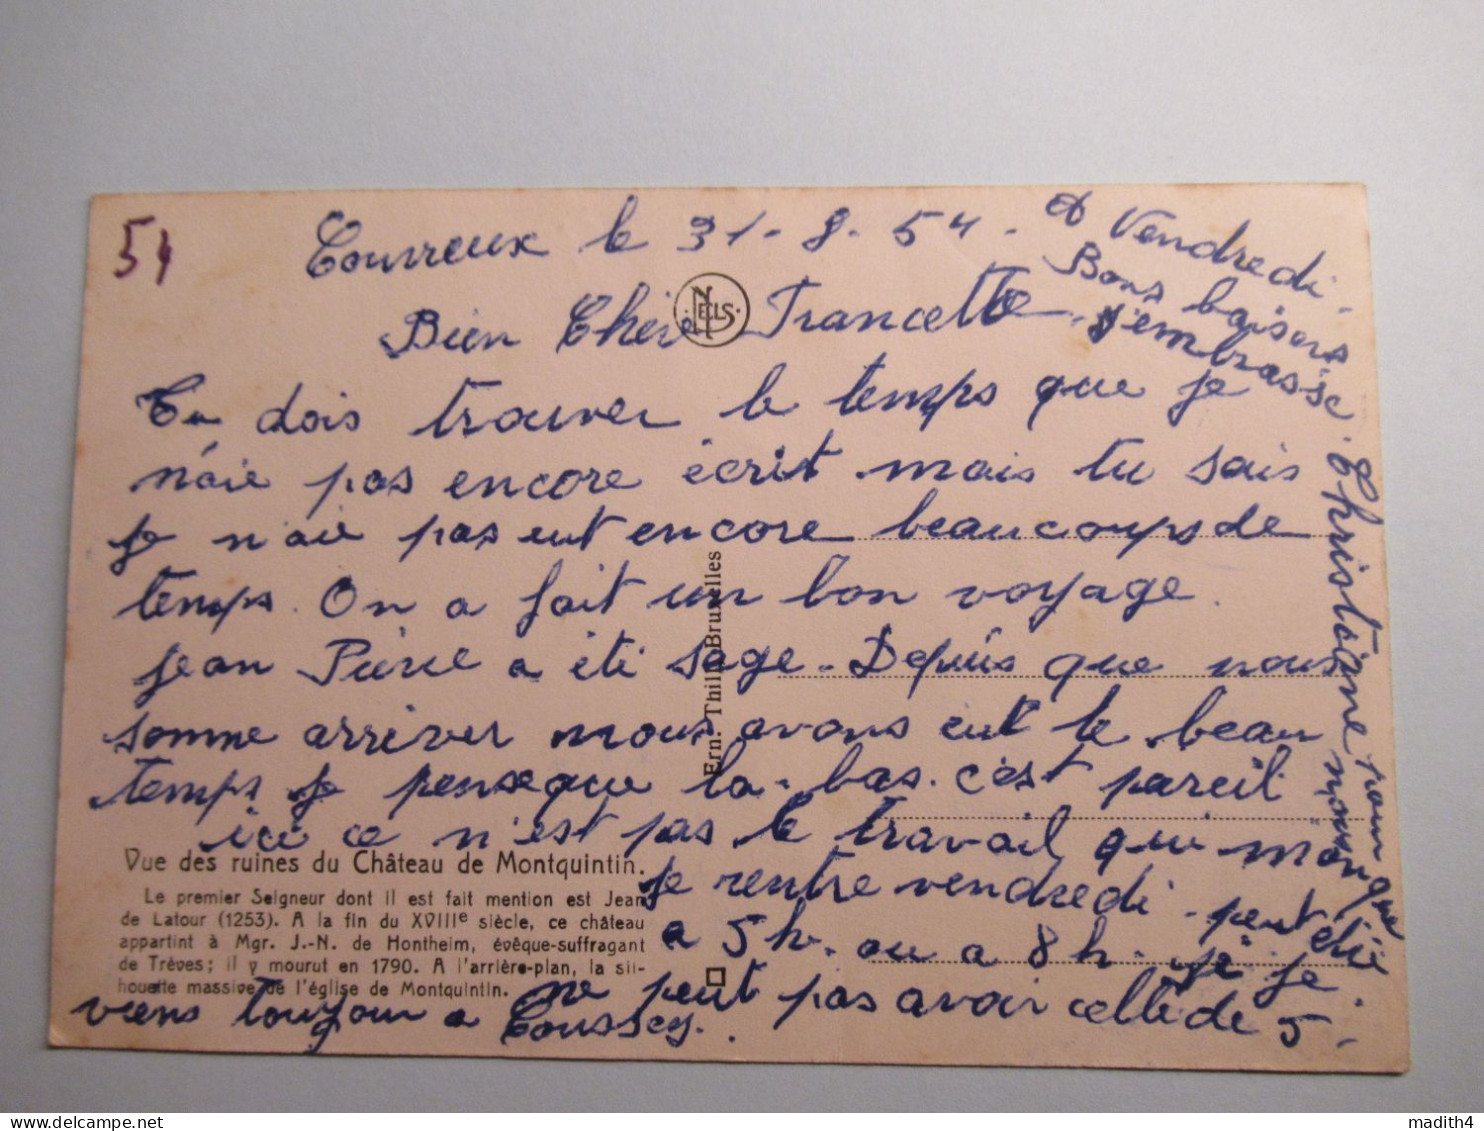 54
Couvreux le 31-8-54.
Bien Chère Francette.
Tu dois trouver le temps que je
n'aie pas encore écrit mais tu sais
je n'aie pas eut encore beaucoups de
temps. On a fait un bon voyage.
Jean Pierre a été sage. Depuis que nous
somme arriver nous avons eut le beau
temps je pense que la-bas. c'est pareil
ici ce n'est pas le travail qui manque
je rentre vendredi. peut être
a 5 h. ou a 8 h. si je
ne peut pas avoir celle de 5.
je viens toujour a Coussey.
A Vendredi.
Bons baisers
J'embrasse
Christiane pour
nous
Vue des ruines du Château de Montquintin.
Le premier Seigneur dont il est fait mention est Jean
de Latour (1253). A la fin du XVIIIe siècle, ce château
appartint à Mgr. J.-N. de Hontheim, évêque-suffragant
de Trèves; il y mourut en 1790. A l'arrière-plan, la sil-
houette massive de l'église de Montquintin.
NELS
Ern. Thill, Bruxelles
delcampe.net
madith4